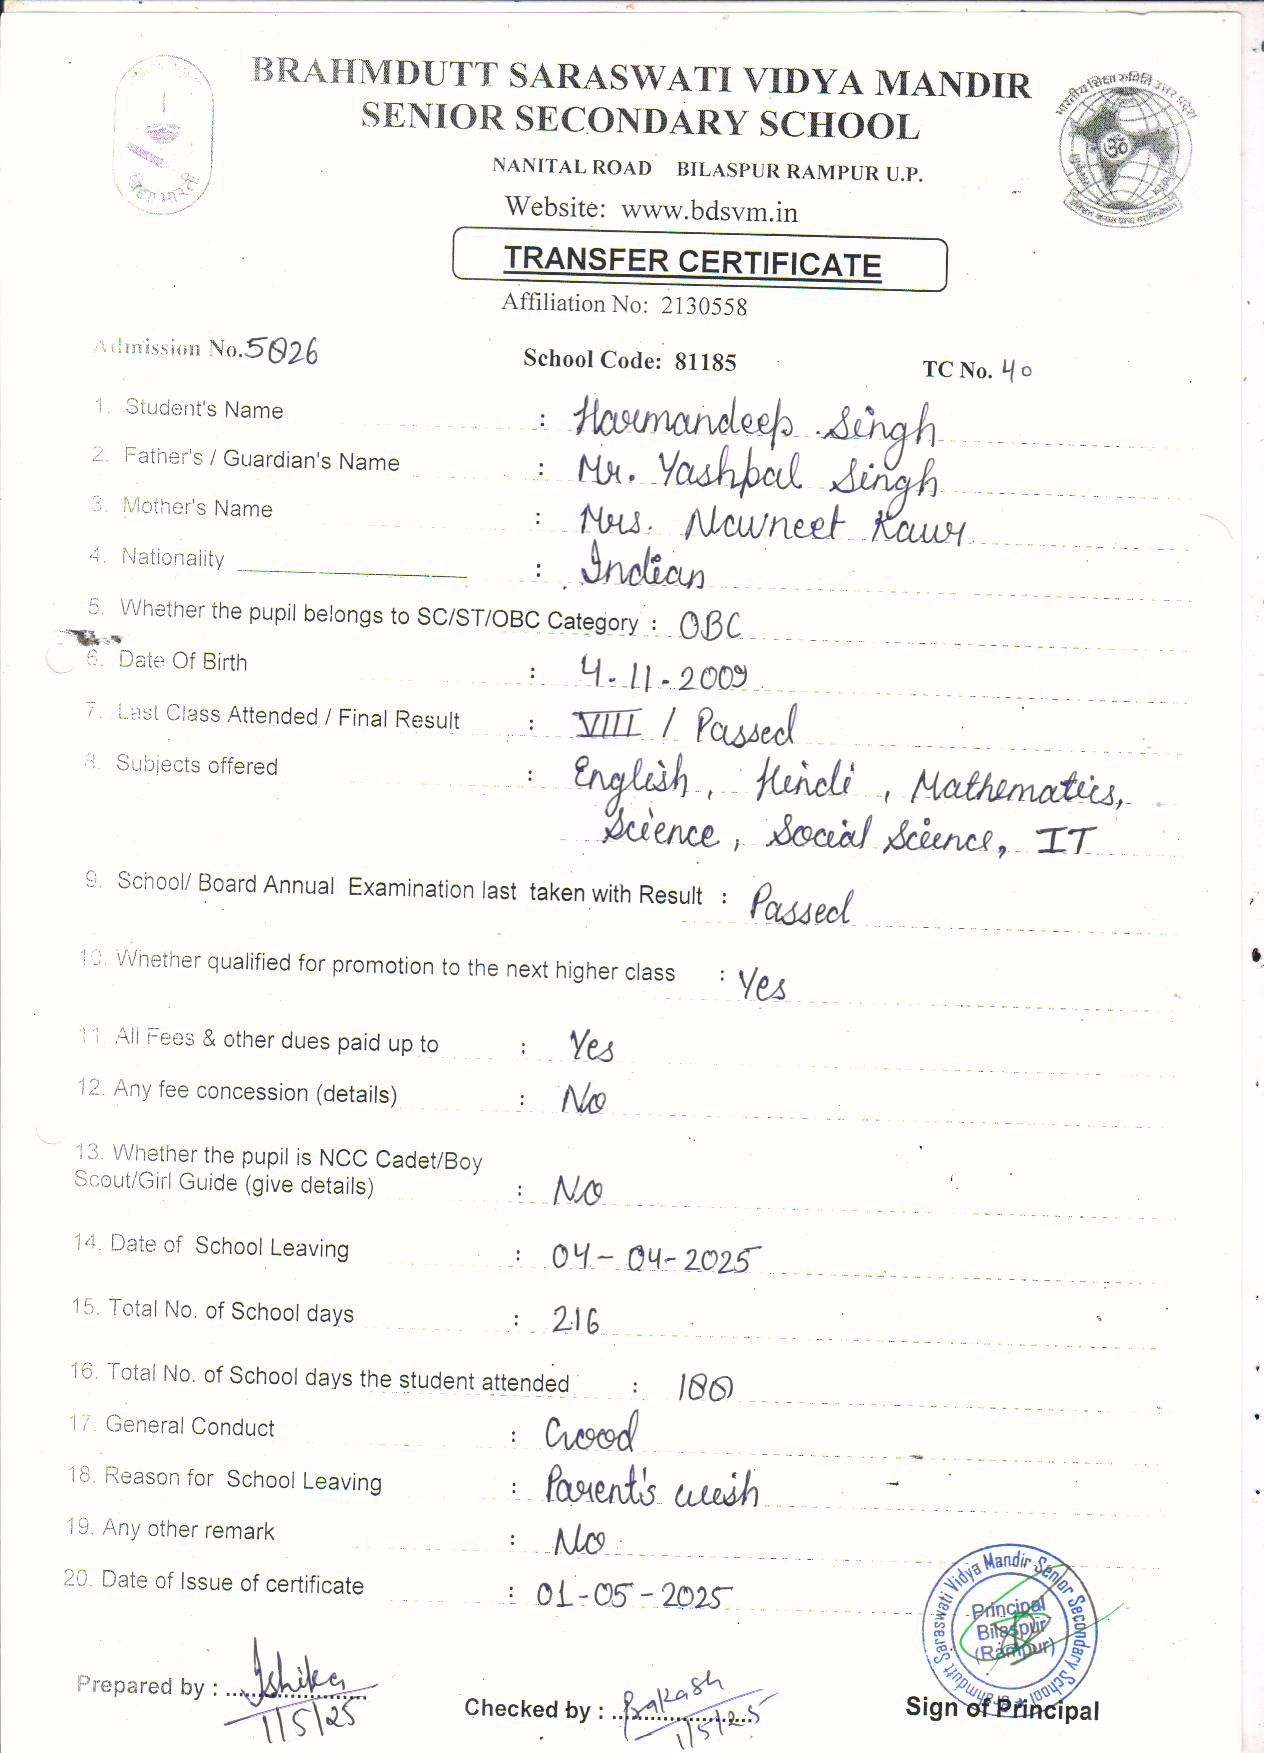 BRAHMDUTT SARASWATI VIDYA MANDIR
SENIOR SECONDARY SCHOOL
NANITAL ROAD BILASPUR RAMPUR U.P.
Website: www.bdsvm.in
TRANSFER CERTIFICATE
Affiliation No: 2130558
Admission No. 5026 School Code: 81185 TC No. 40
1. Student's Name : Harmandeep Singh
2. Father's / Guardian's Name : Mr. Yashpal Singh
3. Mother's Name : Mrs. Nawneet Kaur
4. Nationality : Indian
5. Whether the pupil belongs to SC/ST/OBC Category : OBC
6. Date Of Birth : 4-11-2009
7. Last Class Attended / Final Result : VIII / Passed
8. Subjects offered : English, Hindi, Mathematics,
Science, Social Science, IT
9. School/ Board Annual Examination last taken with Result : Passed
10. Whether qualified for promotion to the next higher class : Yes
11. All Fees & other dues paid up to : Yes
12. Any fee concession (details) : No
13. Whether the pupil is NCC Cadet/Boy
Scout/Girl Guide (give details) : NO
14. Date of School Leaving : 04-04-2025
15. Total No. of School days : 216
16. Total No. of School days the student attended :
17. General Conduct : Good
18. Reason for School Leaving : Parent's wish
19. Any other remark : No
20. Date of Issue of certificate : 01-05-2025
Brahmdutt Saraswati Vidya Mandir Senior Secondary School
Principal
Bilaspur
(Rampur)
Prepared by : Ishika
1/5/25
Checked by : Prakash
1/5/25
Sign of Principal